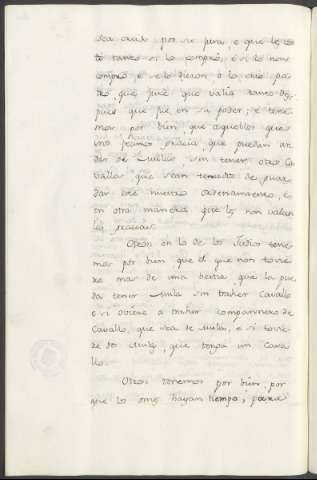 sea creido por su jura, e que les co
to tanto si lo compró, e si lo non
compró, e se lo dieron o lo crió po
tro, que jure que valia tanto des
pues que fue en su poder; e tene
mos por bien, que aquellos que
nos ficimos gracia que puedan an
dar de Mulas sin tener otro Ca
vallo que sean tenudos de guar
dar este nuestro ordenamiento, e
en otra manera que les non valan
las gracias.
Otrosi en lo de los Judios tene
mos por bien que el que non tovie
re mas de una bestia, que la pue
da tener Mula sin traher Cavallo
e si oviere a traher compannero de
Cavallo, que sea de Mula, e si tovie
re dos Mulas, que tenga un Cava
llo.
Otrosi tenemos por bien, por
que los omes hayan tiempo, para